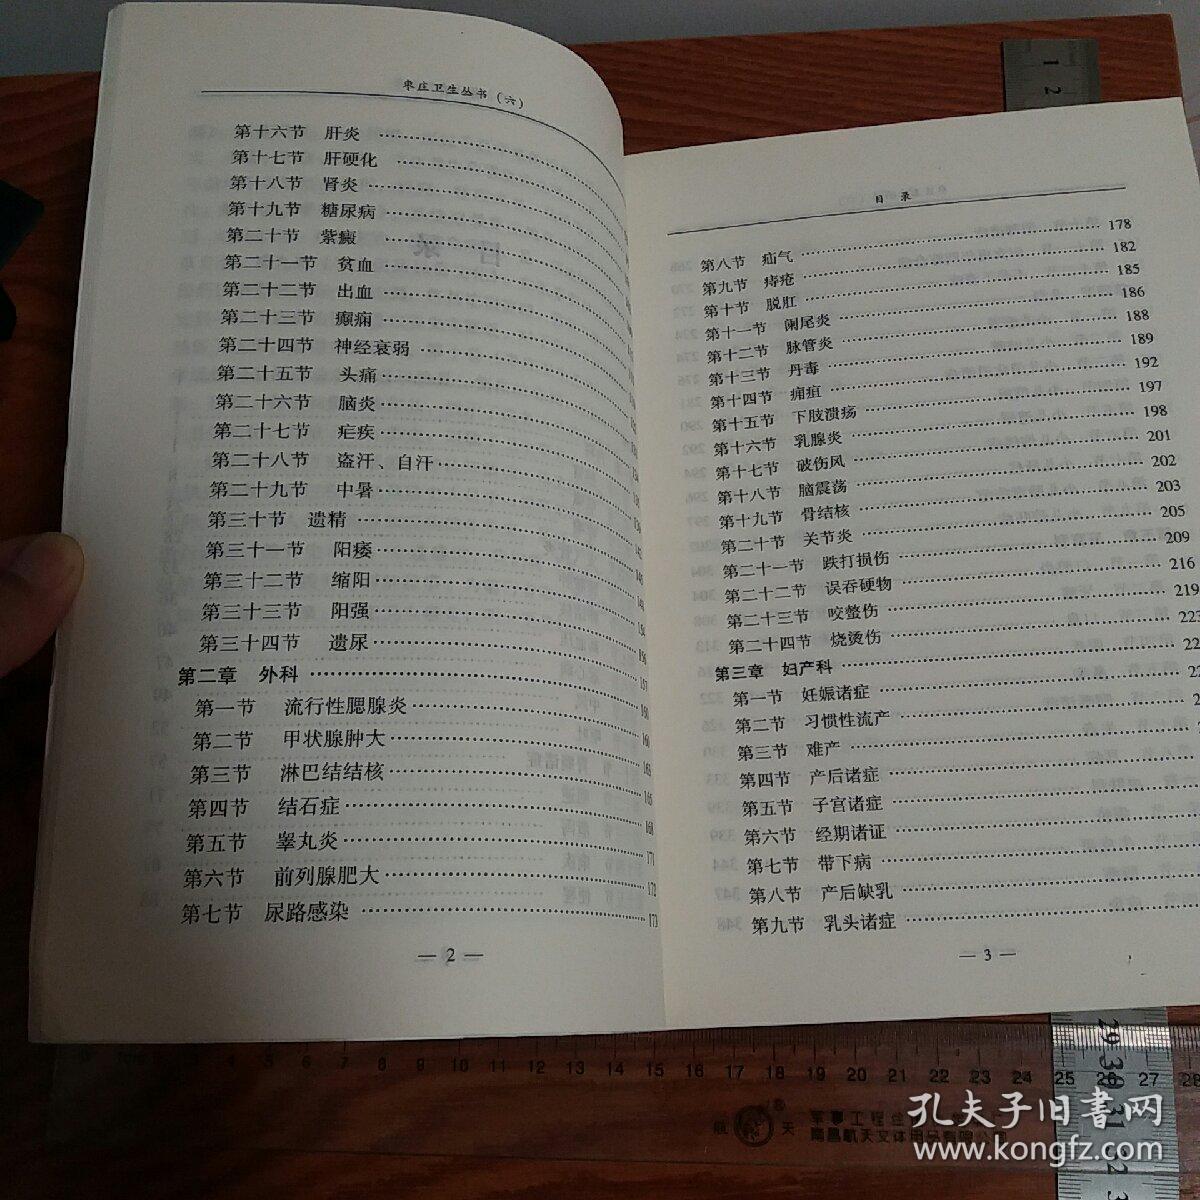 枣庄卫生丛书（六）
第十六节 肝炎
第十七节 肝硬化
第十八节 肾炎
第十九节 糖尿病
第二十节 紫癜
第二十一节 贫血
第二十二节 出血
第二十三节 癫痫
第二十四节 神经衰弱
第二十五节 头痛
第二十六节 脑炎
第二十七节 疟疾
第二十八节 盗汗、自汗
第二十九节 中暑
第三十节 遗精
第三十一节 阳痿
第三十二节 缩阳
第三十三节 阳强
第三十四节 遗尿
第二章 外科
第一节 流行性腮腺炎
第二节 甲状腺肿大
第三节 淋巴结结核
第四节 结石症
第五节 睾丸炎
第六节 前列腺肥大
第七节 尿路感染 173
— 2 —
目录
第八节 疝气 178
第九节 痔疮 182
第十节 脱肛 185
第十一节 阑尾炎 186
第十二节 脉管炎 188
第十三节 丹毒 189
第十四节 痈疽 192
第十五节 下肢溃疡 197
第十六节 乳腺炎 198
第十七节 破伤风 201
第十八节 脑震荡 202
第十九节 骨结核 203
第二十节 关节炎 205
第二十一节 跌打损伤 209
第二十二节 误吞硬物 216
第二十三节 咬螫伤 219
第二十四节 烧烫伤 223
第三章 妇产科
第一节 妊娠诸症
第二节 习惯性流产
第三节 难产
第四节 产后诸症
第五节 子宫诸症
第六节 经期诸证
第七节 带下病
第八节 产后缺乳
第九节 乳头诸症
— 3 —
孔夫子旧书网
www.kongfz.com